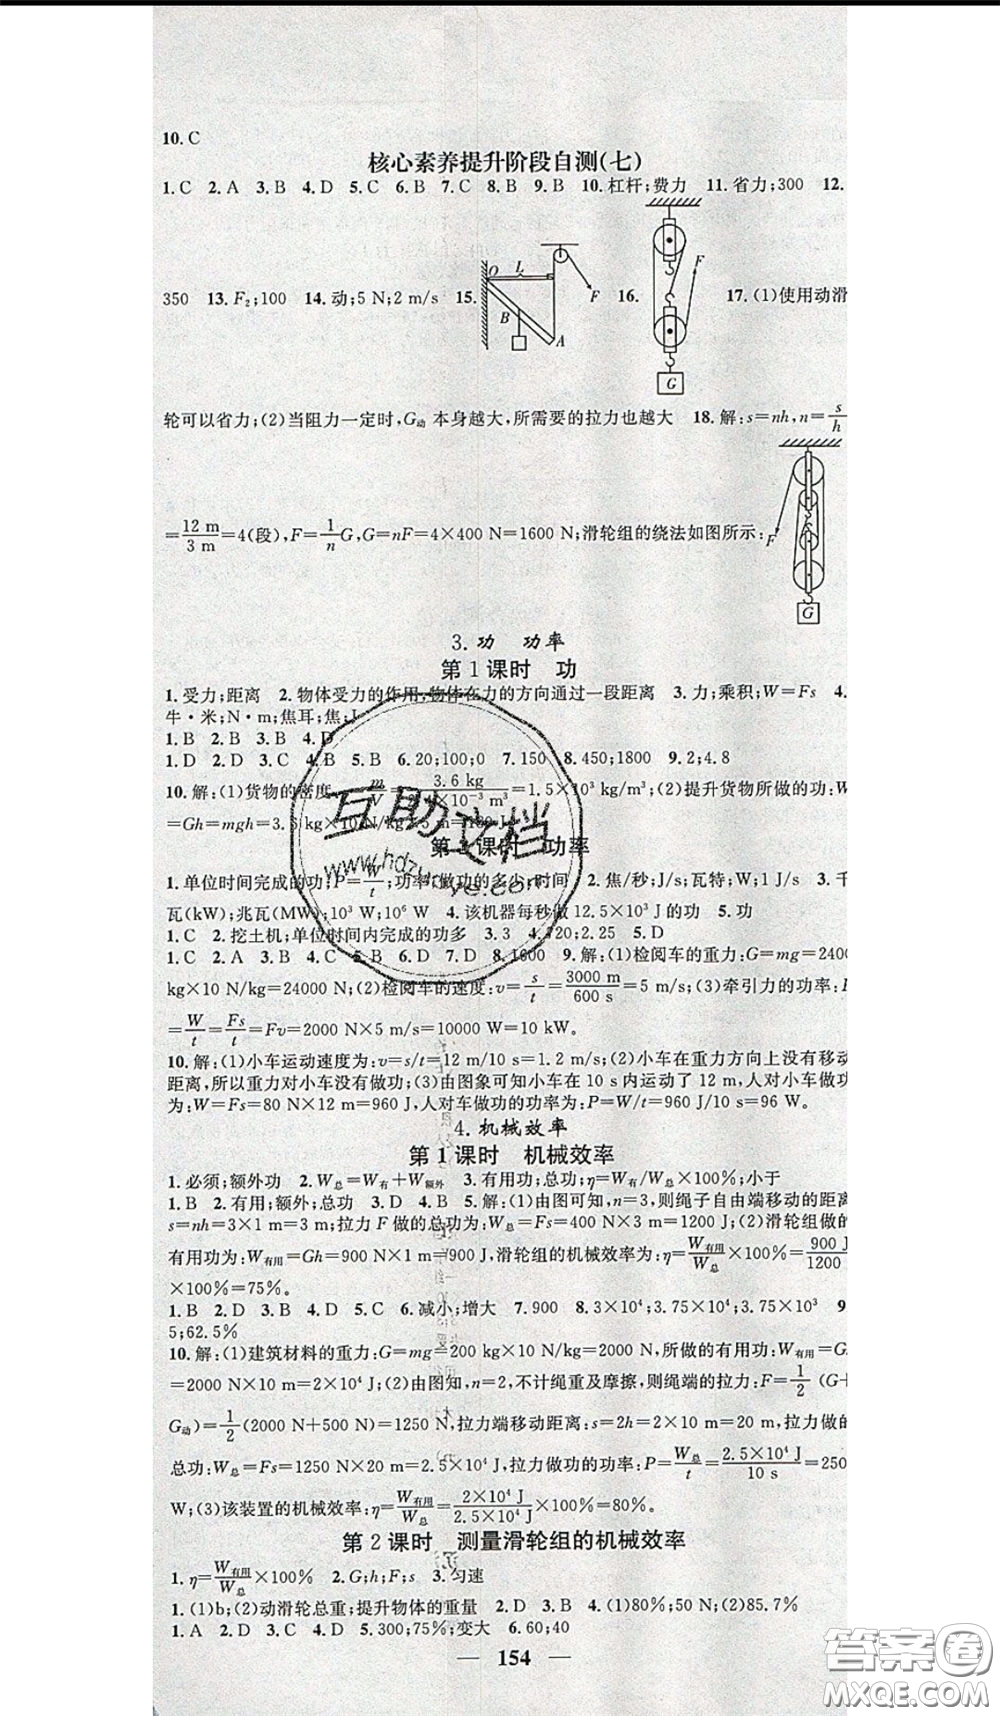 10. C
核心素养提升阶段自测(七)
1. C 2. A 3. B 4. D 5. C 6. B 7. C 8. B 9. B 10. 杠杆;费力 11. 省力;300 12.
350 13. F₂;100 14. 动;5 N;2 m/s 15. 16. 17. (1)使用动滑
O L B A F
F G
轮可以省力;(2)当阻力一定时,G动 本身越大,所需要的拉力也越大 18. 解:s=nh,n=s/h
=12 m/3 m=4(段),F=1/n G,G=nF=4×400 N=1600 N;滑轮组的绕法如图所示:
F G
3. 功 功率
第1课时 功
1. 受力;距离 2. 物体受力的作用;物体在力的方向通过一段距离 3. 力;乘积;W=Fs 4.
牛·米;N·m;焦耳;焦;J
1. B 2. B 3. B 4. D
1. D 2. D 3. C 4. B 5. B 6. 20;100;0 7. 150 8. 450;1800 9. 2;4.8
10. 解:(1)货物的密度 m/V=3.6 kg/ ×10⁻³ m³=1.5×10³ kg/m³;(2)提升货物所做的功:W
=Gh=mgh=3.6 kg×10 N/kg× m= J
第 课时 功率
1. 单位时间完成的功;P=W/t;功率;做功的多少;时间 2. 焦/秒;J/s;瓦特;W;1 J/s 3. 千
瓦(kW);兆瓦(MW);10³ W;10⁶ W 4. 该机器每秒做 12.5×10³ J的功 5. 功
1. C 2. 挖土机;单位时间内完成的功多 3. 3 4. 720;2 5. D
1. C 2. A 3. D 4. B 5. B 6. D 7. D 8. 1600 9. 解:(1)检阅车的重力:G=mg=2400
kg×10 N/kg=24000 N;(2)检阅车的速度:v=s/t=3000 m/600 s=5 m/s;(3)牵引力的功率:
=W/t=Fs/t=Fv=2000 N×5 m/s=10000 W=10 kW.
10. 解:(1)小车运动速度为:v=s/t=12 m/10 s=1.2 m/s;(2)小车在重力方向上没有移动
距离,所以重力对小车没有做功;(3)由图象可知小车在 10 s内运动了 12 m,人对小车做功
为:W=Fs=80 N×12 m=960 J,人对车做功的功率为:P=W/t=960 J/10s=96 W.
4. 机械效率
第1课时 机械效率
1. 必须;额外功 2. W总=W有+W额外 3. 有用功;总功;η=W有/W总×100%;小于
1. B 2. 有用;额外;总功 3. D 4. B 5. 解:(1)由图可知,n=3,则绳子自由端移动的距离
s=nh=3×1 m=3 m;拉力 F 做的总功为:W总=Fs=400 N×3 m=1200 J;(2)滑轮组做的
有用功为:W有用=Gh=900 N×1 m=900 J,滑轮组的机械效率为:η=W有用/W总×100%=900 J/1200
×100%=75%.
1. B 2. D 3. B 4. D 5. C 6. 减小;增大 7. 900 8. 3×10⁴;3.75×10⁴;3.75×10³ 9
5;62.5%
10. 解:(1)建筑材料的重力:G=mg=200 kg×10 N/kg=2000 N,所做的有用功:W有用=G
=2000 N×10 m=2×10⁴ J;(2)由图知,n=2,不计绳重及摩擦,则绳端的拉力:F=1/2 (G+
G动)=1/2(2000 N+500 N)=1250 N,拉力端移动距离:s=2h=2×10 m=20 m,拉力做的
总功:W总=Fs=1250 N×20 m=2.5×10⁴ J,拉力做功的功率:P=W总/t=2.5×10⁴ J/10 s=250
W;(3)该装置的机械效率:η=W有用/W总=2×10⁴ J/2.5×10⁴ J×100%=80%.
第2课时 测量滑轮组的机械效率
1. η=W有用/W总×100% 2. G;h;F;s 3. 匀速
1. (1)b;(2)动滑轮总重;提升物体的重量 2. D 3. B 4. (1)80%;50 N;(2)85.7%
1. A 2. D 3. C 4. D 5. 300;75%;变大 6. 60;40
— 154 —
互助文档
答案卷
MXQE.COM